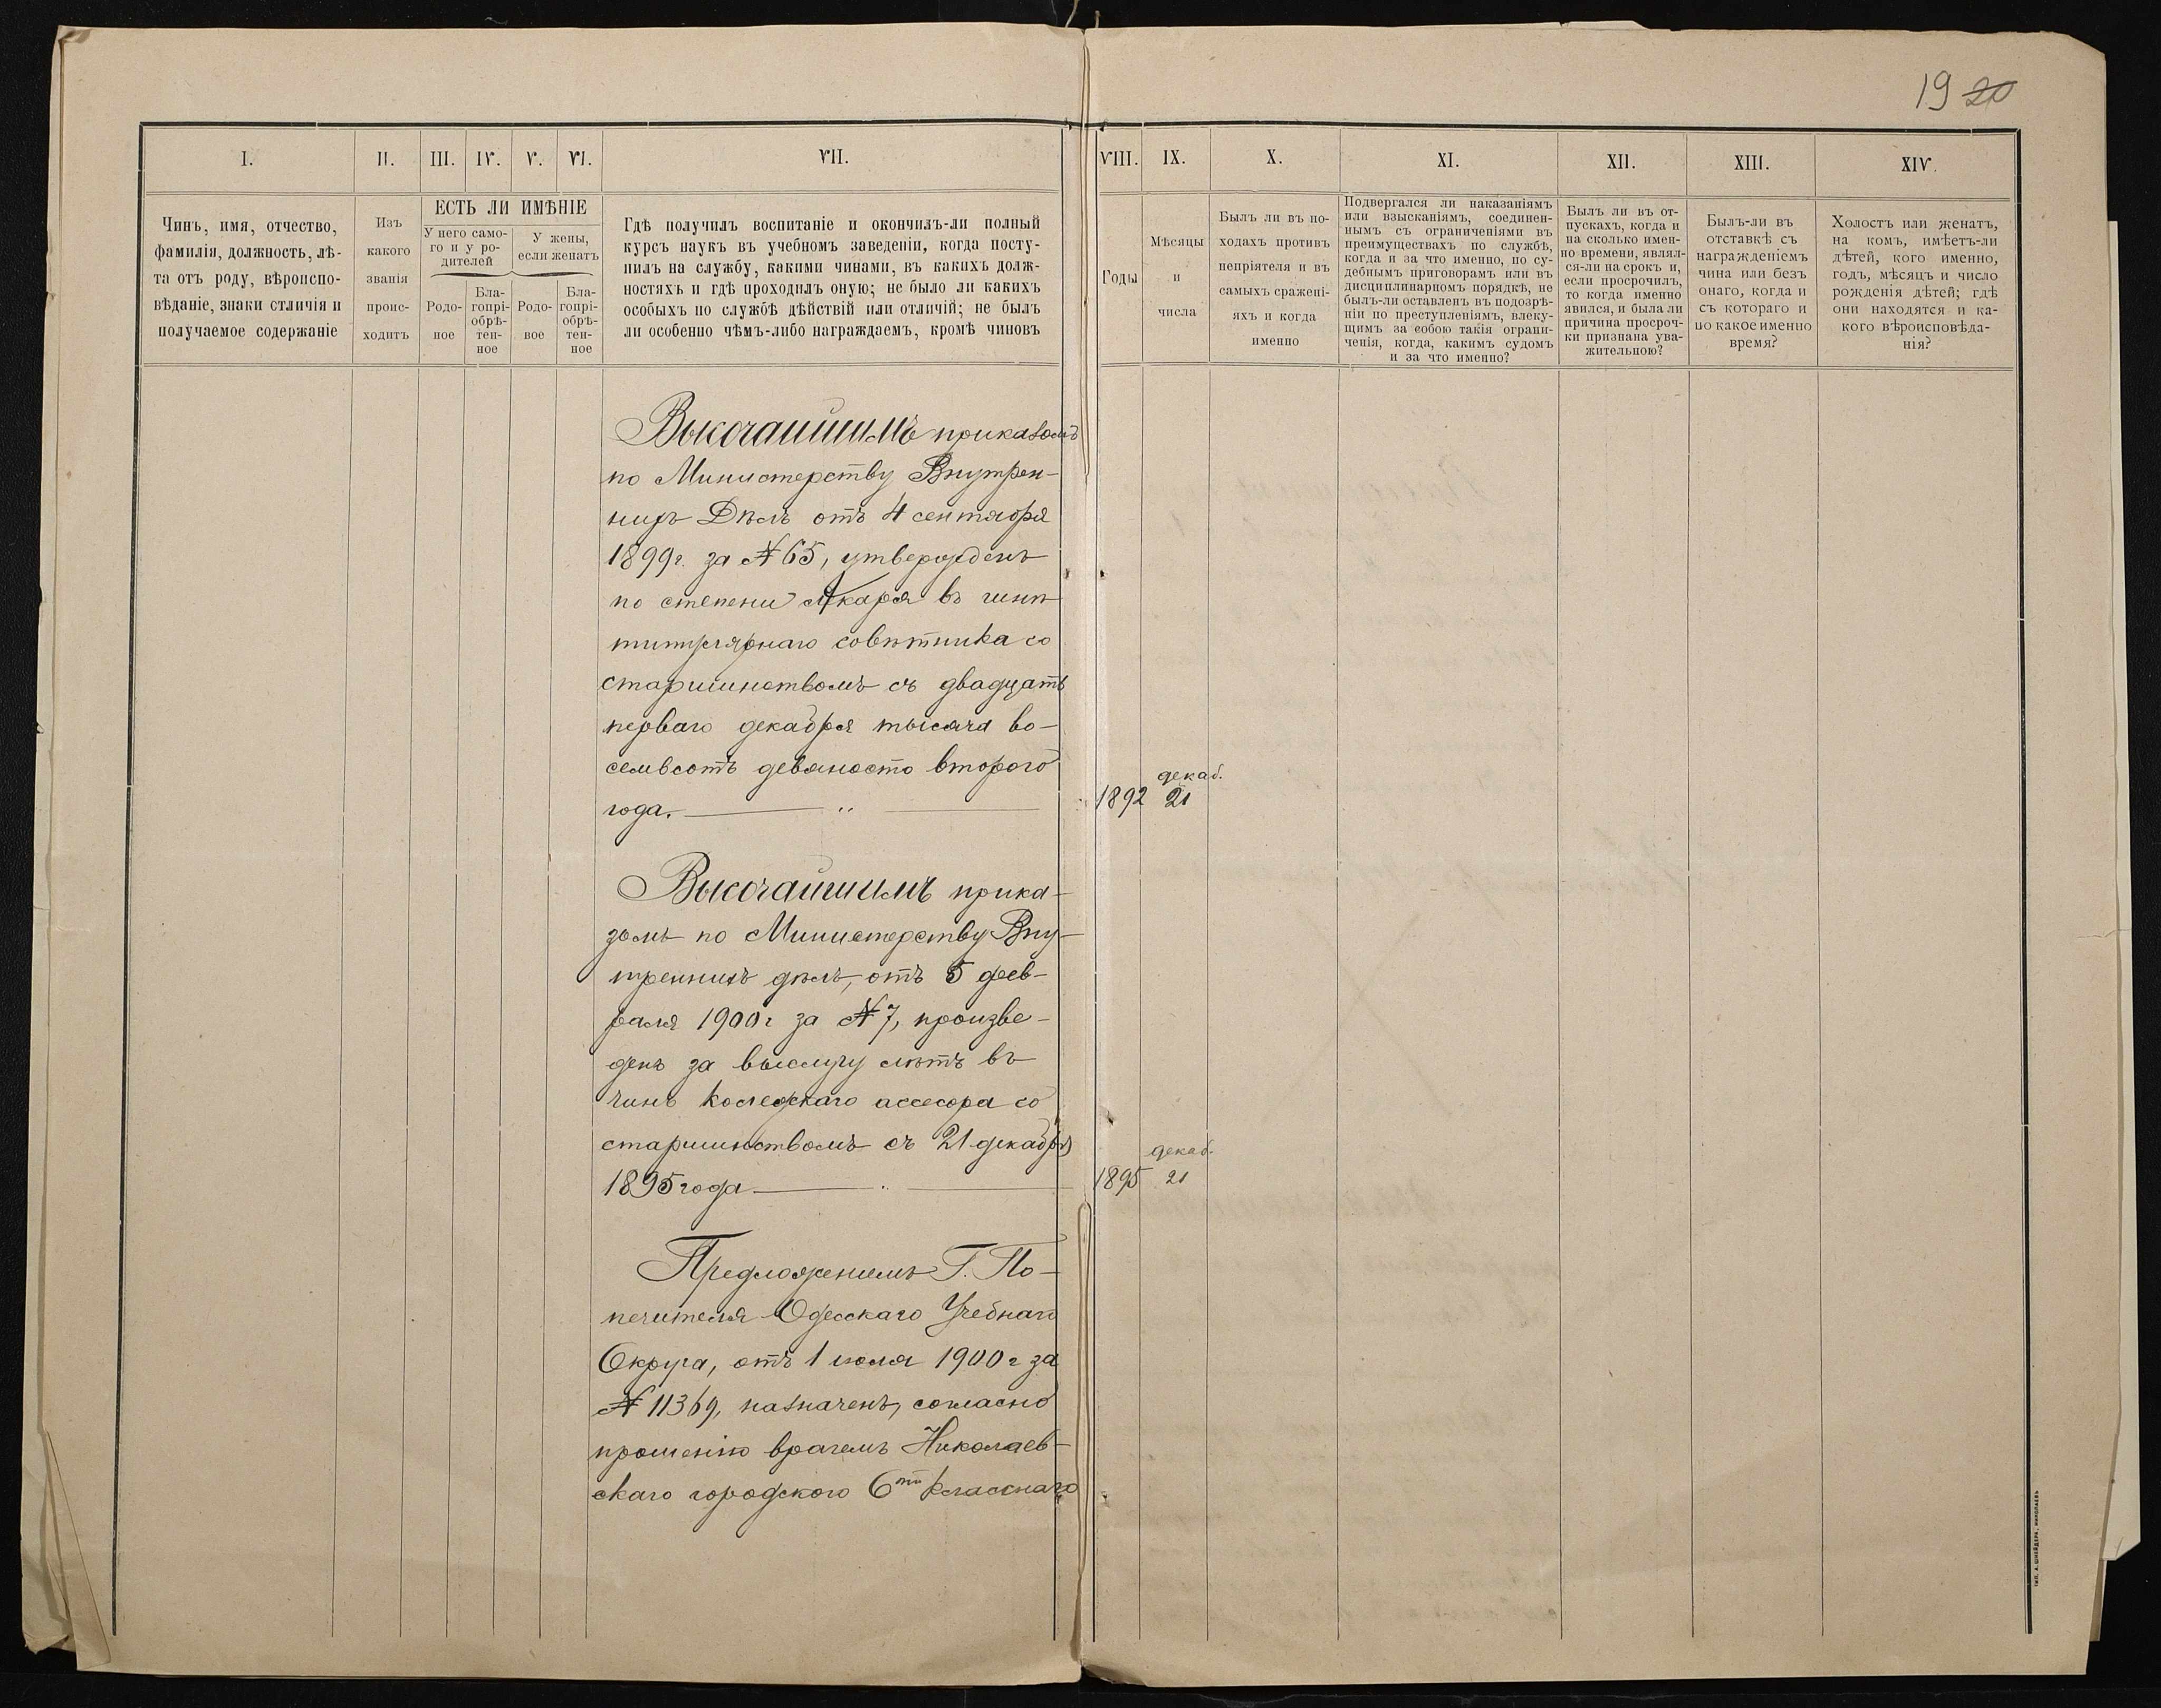 19 20
I.
II.
III.
IV.
V.
VI.
VII.
VIII.
IX.
X.
XI.
XII.
XIII.
XIV.
Чинъ, имя, отчество,
фамилія, должность, лѣ-
та отъ роду, вѣроиспо-
вѣданіе, знаки отличія и
получаемое содержаніе
Изъ
какого
званія
проис-
ходитъ
ЕСТЬ ЛИ ИМѢНІЕ
У него само-
го и у ро-
дителей
У жены,
если женатъ
Родо-
вое
Бла-
гопрі-
обрѣ-
тен-
ное
Родо-
вое
Бла-
гопрі-
обрѣ-
тен-
ное
Гдѣ получилъ воспитаніе и окончилъ-ли полный
курсъ наукъ въ учебномъ заведеніи, когда посту-
пилъ на службу, какими чинами, въ какихъ долж-
ностяхъ и гдѣ проходилъ оную; не было ли какихъ
особыхъ по службѣ дѣйствій или отличій; не былъ
ли особенно чѣмъ-либо награждаемъ, кромѣ чиновъ
Годы
Мѣсяцы
и
числа
Былъ ли въ по-
ходахъ противъ
непріятеля и въ
самыхъ сражені-
яхъ и когда
именно
Подвергался ли наказаніямъ
или взысканіямъ, соединен-
нымъ съ ограниченіями въ
преимуществахъ по службѣ,
когда и за что именно, по су-
дебнымъ приговорамъ или въ
дисциплинарномъ порядкѣ, не
былъ-ли оставленъ въ подозрѣ-
ніи по преступленіямъ, влеку-
щимъ за собою такія ограни-
ченія, когда, какимъ судомъ
и за что именно?
Былъ ли въ от-
пускахъ, когда и
на сколько имен-
но времени, являл-
ся-ли на срокъ и,
если просрочилъ,
то когда именно
явился, и была ли
причина просроч-
ки признана ува-
жительною?
Былъ-ли въ
отставкѣ съ
награжденіемъ
чина или безъ
онаго, когда и
съ котораго и
по какое именно
время?
Холостъ или женатъ,
на комъ, имѣетъ-ли
дѣтей, кого именно,
годъ, мѣсяцъ и число
рожденія дѣтей; гдѣ
они находятся и ка-
кого вѣроисповѣда-
нія?
Высочайшимъ приказомъ
по Министерству Внутрен-
нихъ Дѣлъ отъ 4 сентября
1899 г. за № 65, утвержденъ
по степени лѣкаря въ чинѣ
титулярнаго совѣтника со
старшинствомъ съ двадцать
перваго декабря тысяча во-
семьсотъ девяносто второго
года.
1892
декаб.
21
Высочайшимъ прика-
зомъ по Министерству Вну-
треннихъ дѣлъ, отъ 5 фев-
раля 1900 г за № 7, произве-
денъ за выслугу лѣтъ въ
чинъ колежскаго ассесора со
старшинствомъ съ 21 декабря
1895 года
1895
декаб.
21
Предложеніемъ Г. По-
печителя Одесскаго Учебнаго
Округа, отъ 1 июля 1900 г за
№ 11369, назначенъ, согласно
прошенію врачемъ Николаев-
скаго городского 6ти класснаго
ТИП. А. ШНЕЙДЕРА, НИКОЛАЕВЪ